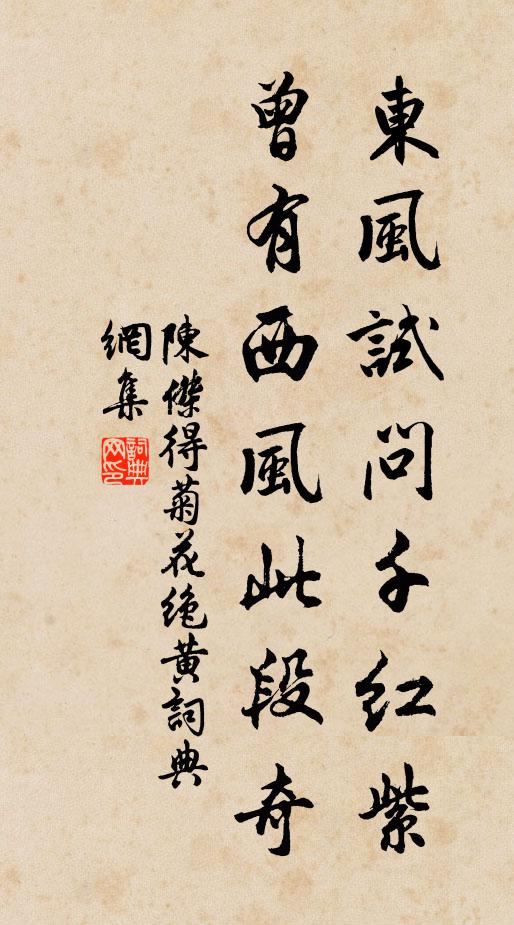 東風試問千红紫
曾有西風此段奇
陳傑得菊花绝黄詞典
網集
詞典
网印